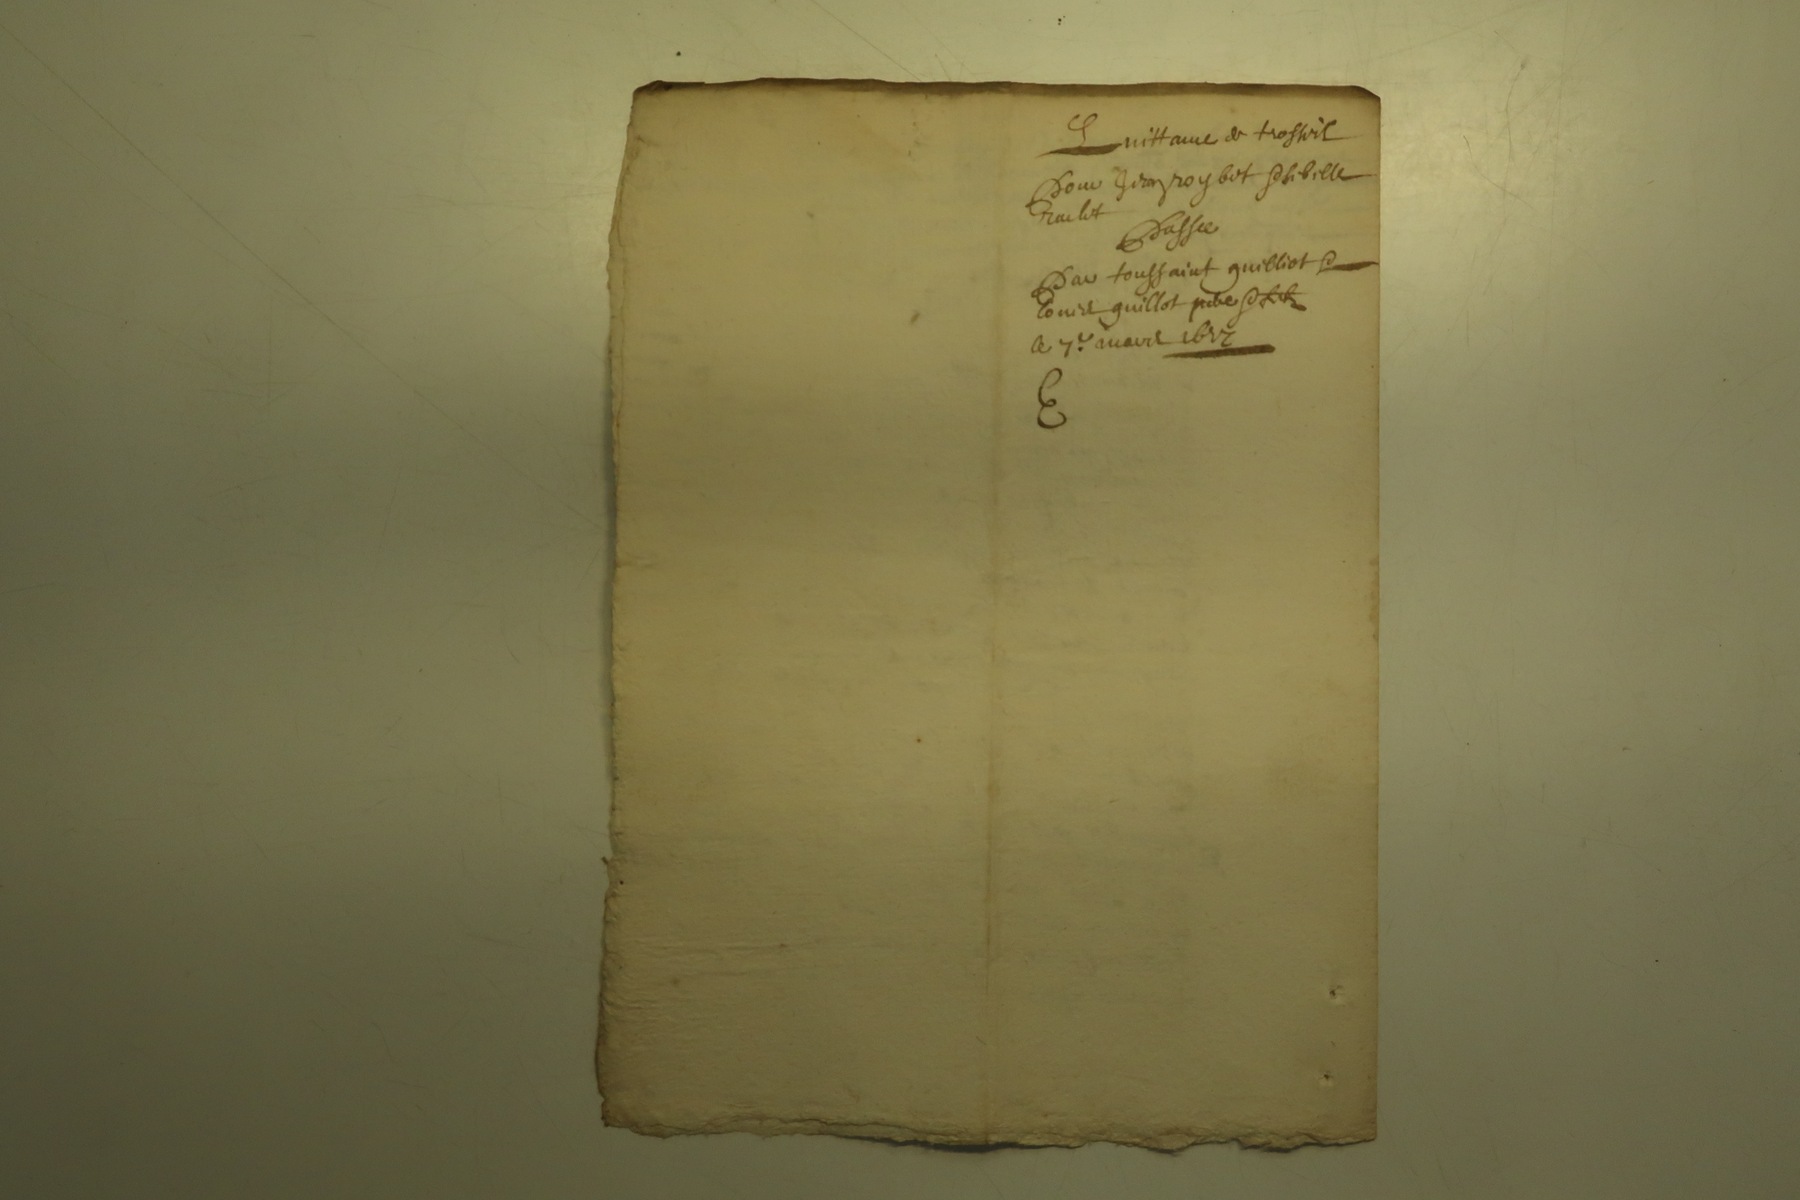 Quittance de trossel
Pour Jean roybet & sibille
rachet
Passee
Par toussaint guilliot &
Louis guillot pere & filz
le 7.e mars 1652
E